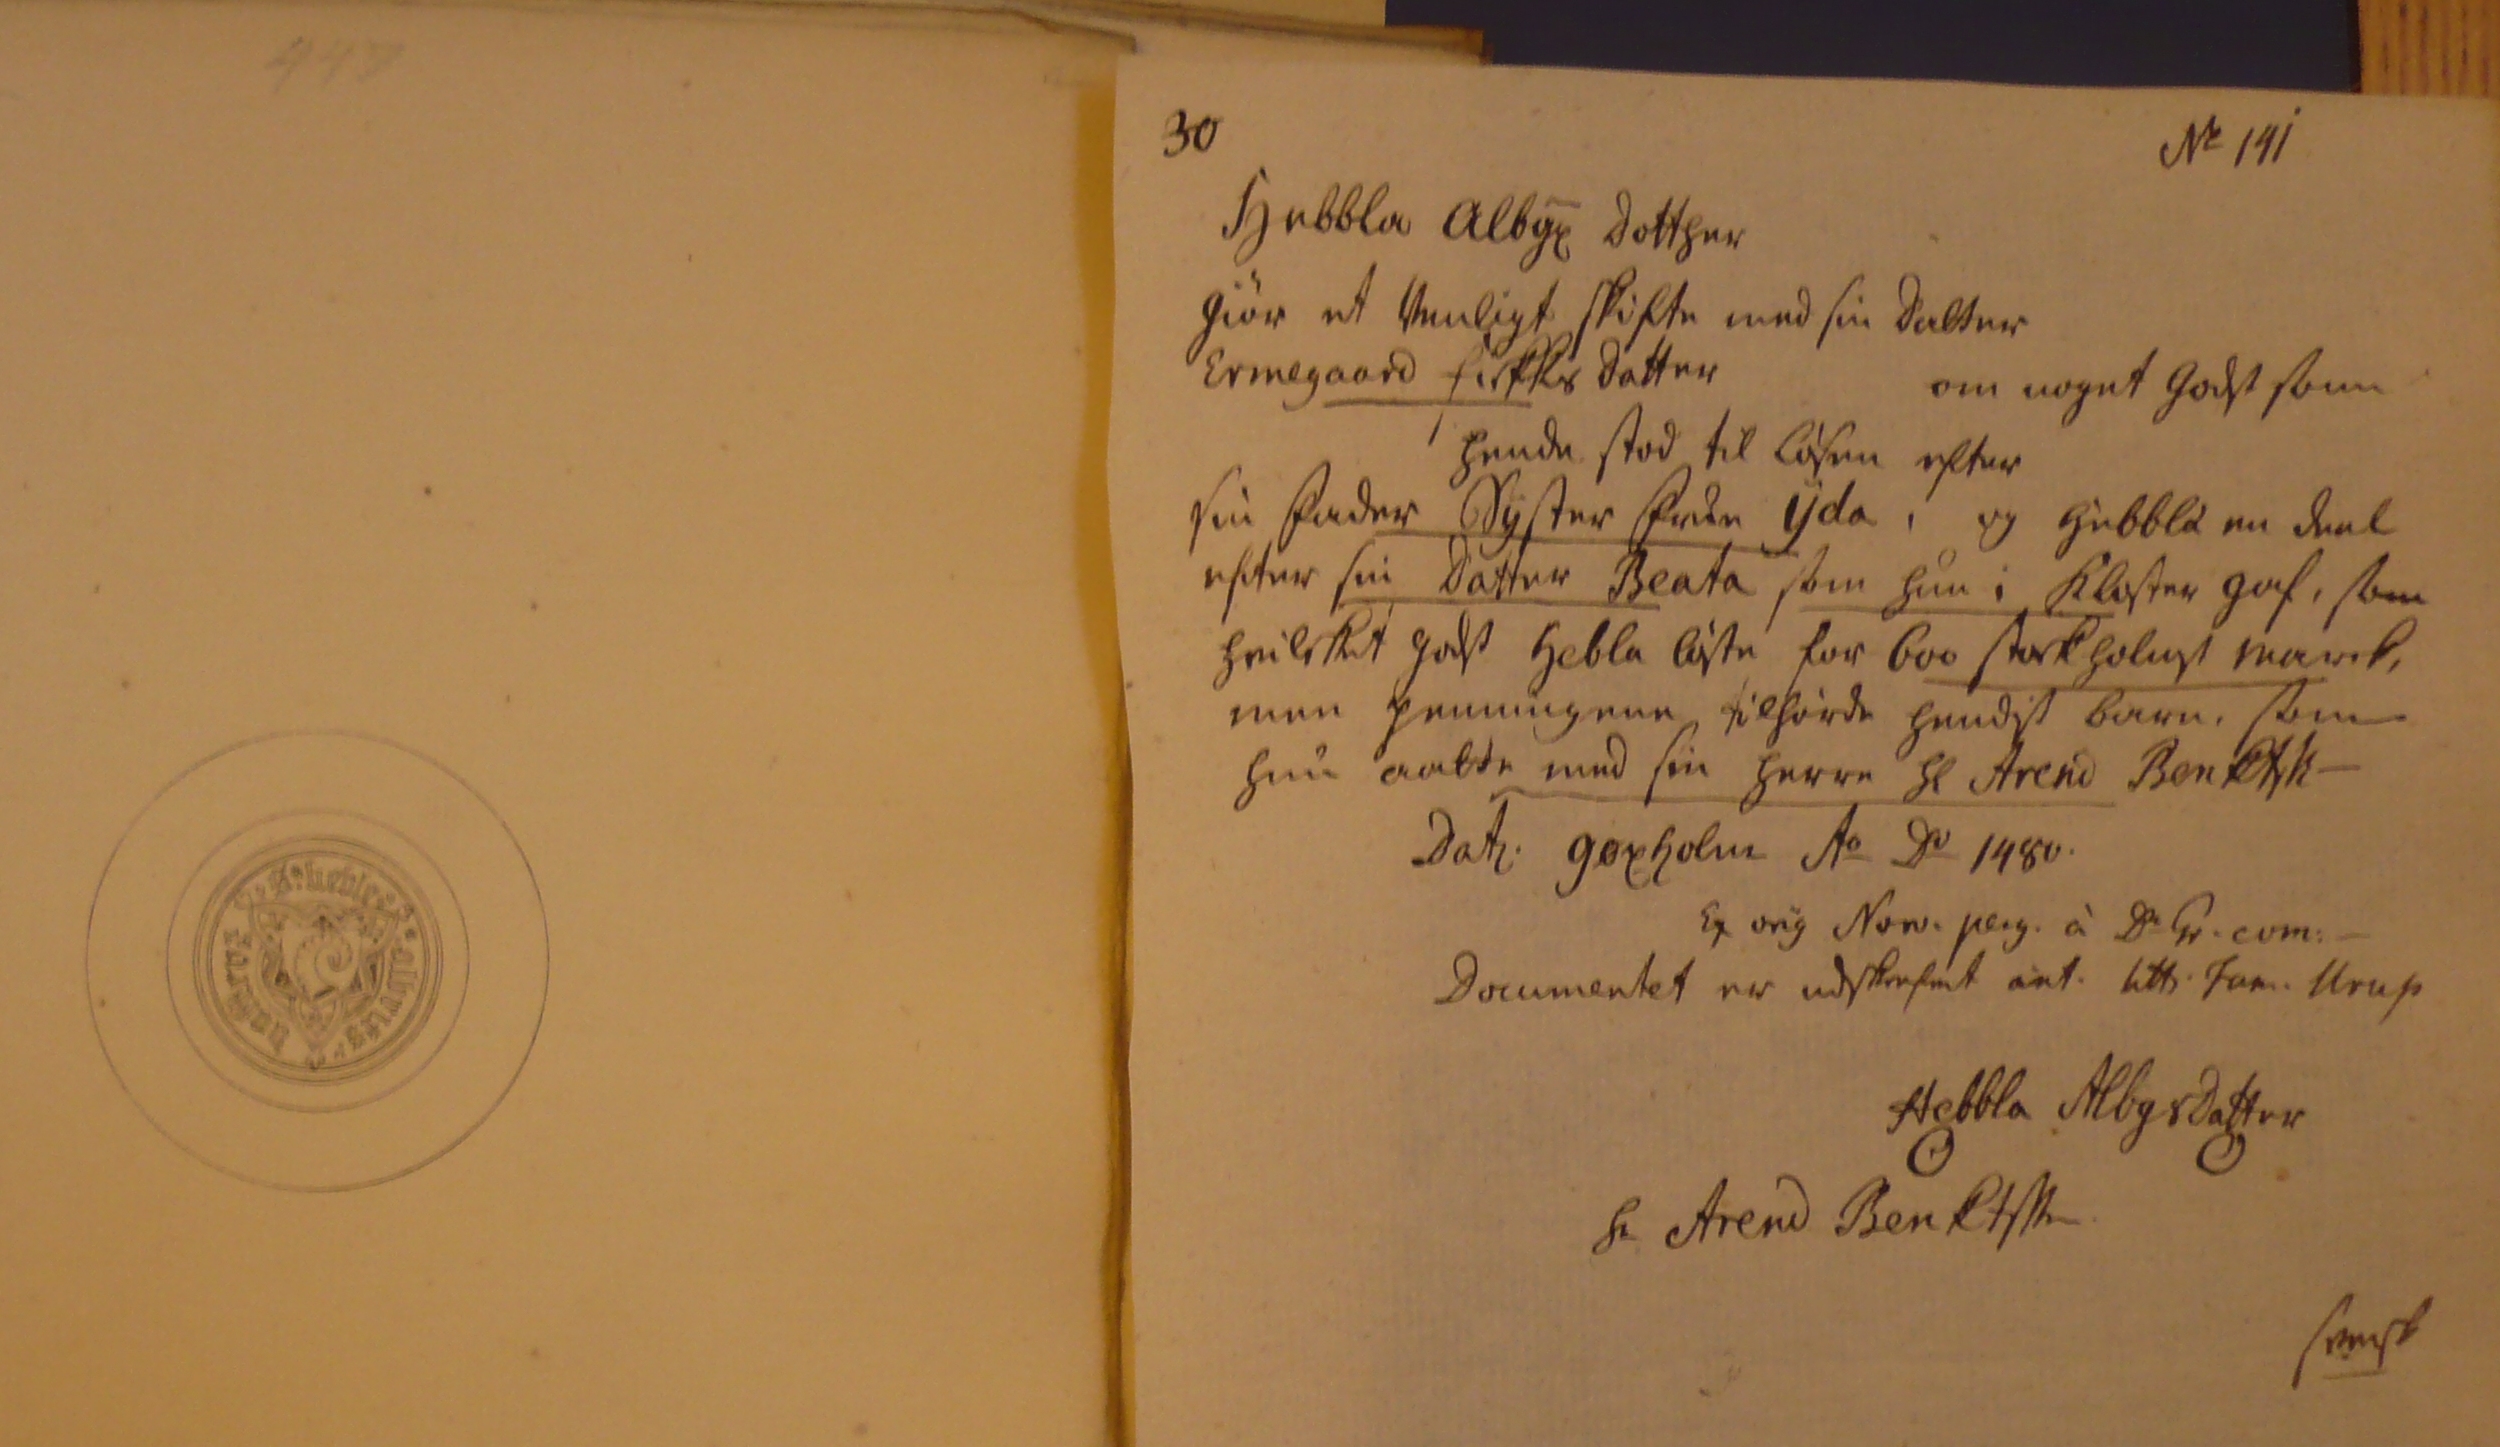 447
30
No 141
Hebbla Albgx Dotther
giör et Venligt skifte med sin Datter
Ermegaard firkks Datter om noget Godst som
hende stod til lösen efter
sin Fader Syster Frue Yda, og Hebbla en deel
efter sin Datter Beata som hun i Kloster gaf, som
hvilchet godst Hebla löste for 600 stockholmst marck,
men penningene tilhörde hendis barn, som
hun aatte med sin Herre Hr Arend Benktss
Dat. goxholm Ao Do 1480.
Ex orig Norv. perg. à Dr Gr. com:
Documentet er udskrefvet int. litt. Fam. Urup
Hebbla Albgsdatter
Hr Arend Benktss
svensk